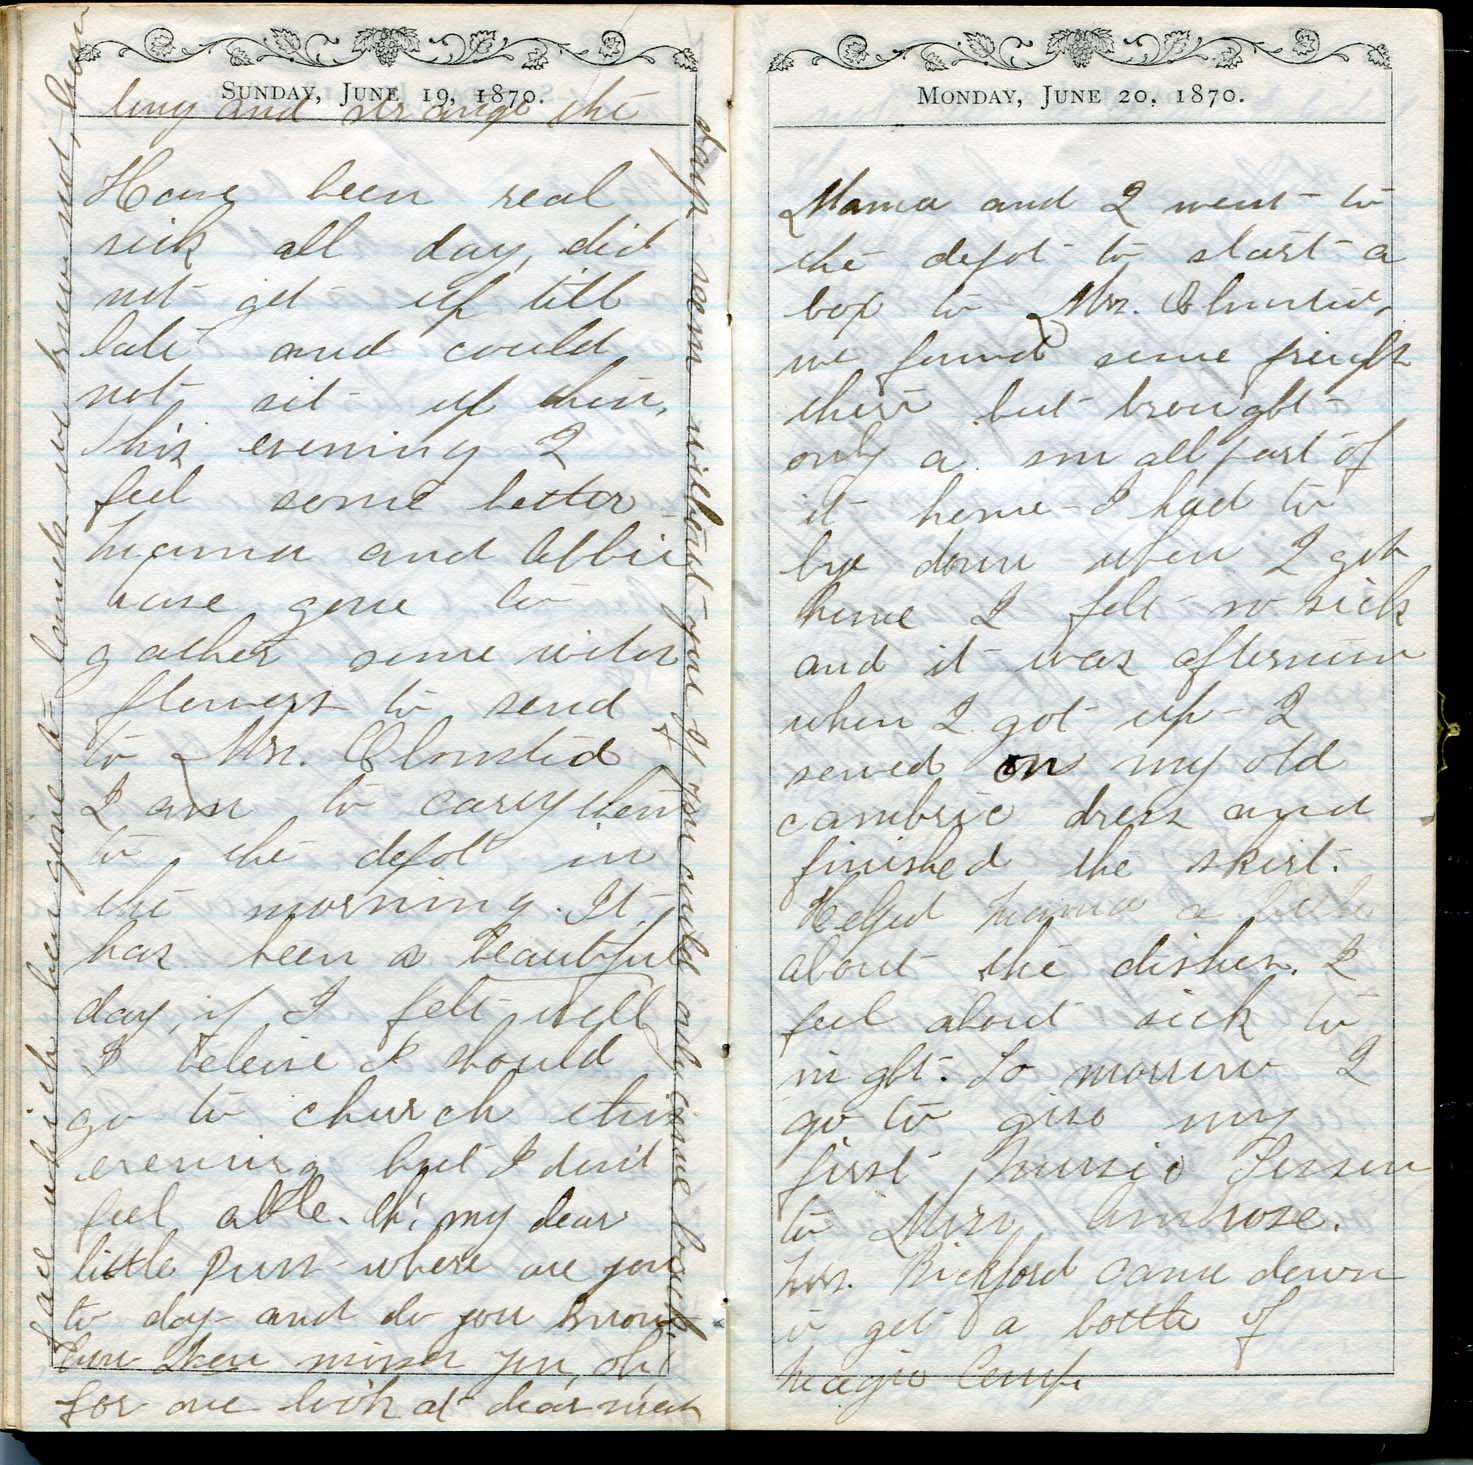 SUNDAY, JUNE 19, 1870.
Have been real
sick all day, did
not get up till
late and could
not sit up then,
this evening I
feel some better
Mama and Abbie
have gone to
gather some water
flowers to send
to Mrs. Olmsted
I am to carry them
to the depot in
the morning. It
has been a beautiful
day, if I felt well
I beleive I should
go to church this
evening but I don't
feel able. Oh! my dear
little Puss where are you
to day and do you know
how I miss you, oh!
for one look at dear
face which has gone to we know not how
long and strange the
days seem without you if you could only come back
MONDAY, JUNE 20, 1870.
Mama and I went to
the depot to start a
box to Mrs. Olmsted,
we found some freight
there but brought
only a small part of
it home I had to
lye down when I got
home I felt so sick
and it was afternoon
when I got up I
sewed on my old
cambric dress and
finished the skirt.
Helped Mama a little
about the dishes. I
feel about sick to
night. To morrow I
go to give my
first music lesson
to Miss Ambrose.
Mrs. Bickford came down
to get a bottle of
Magic Comp.